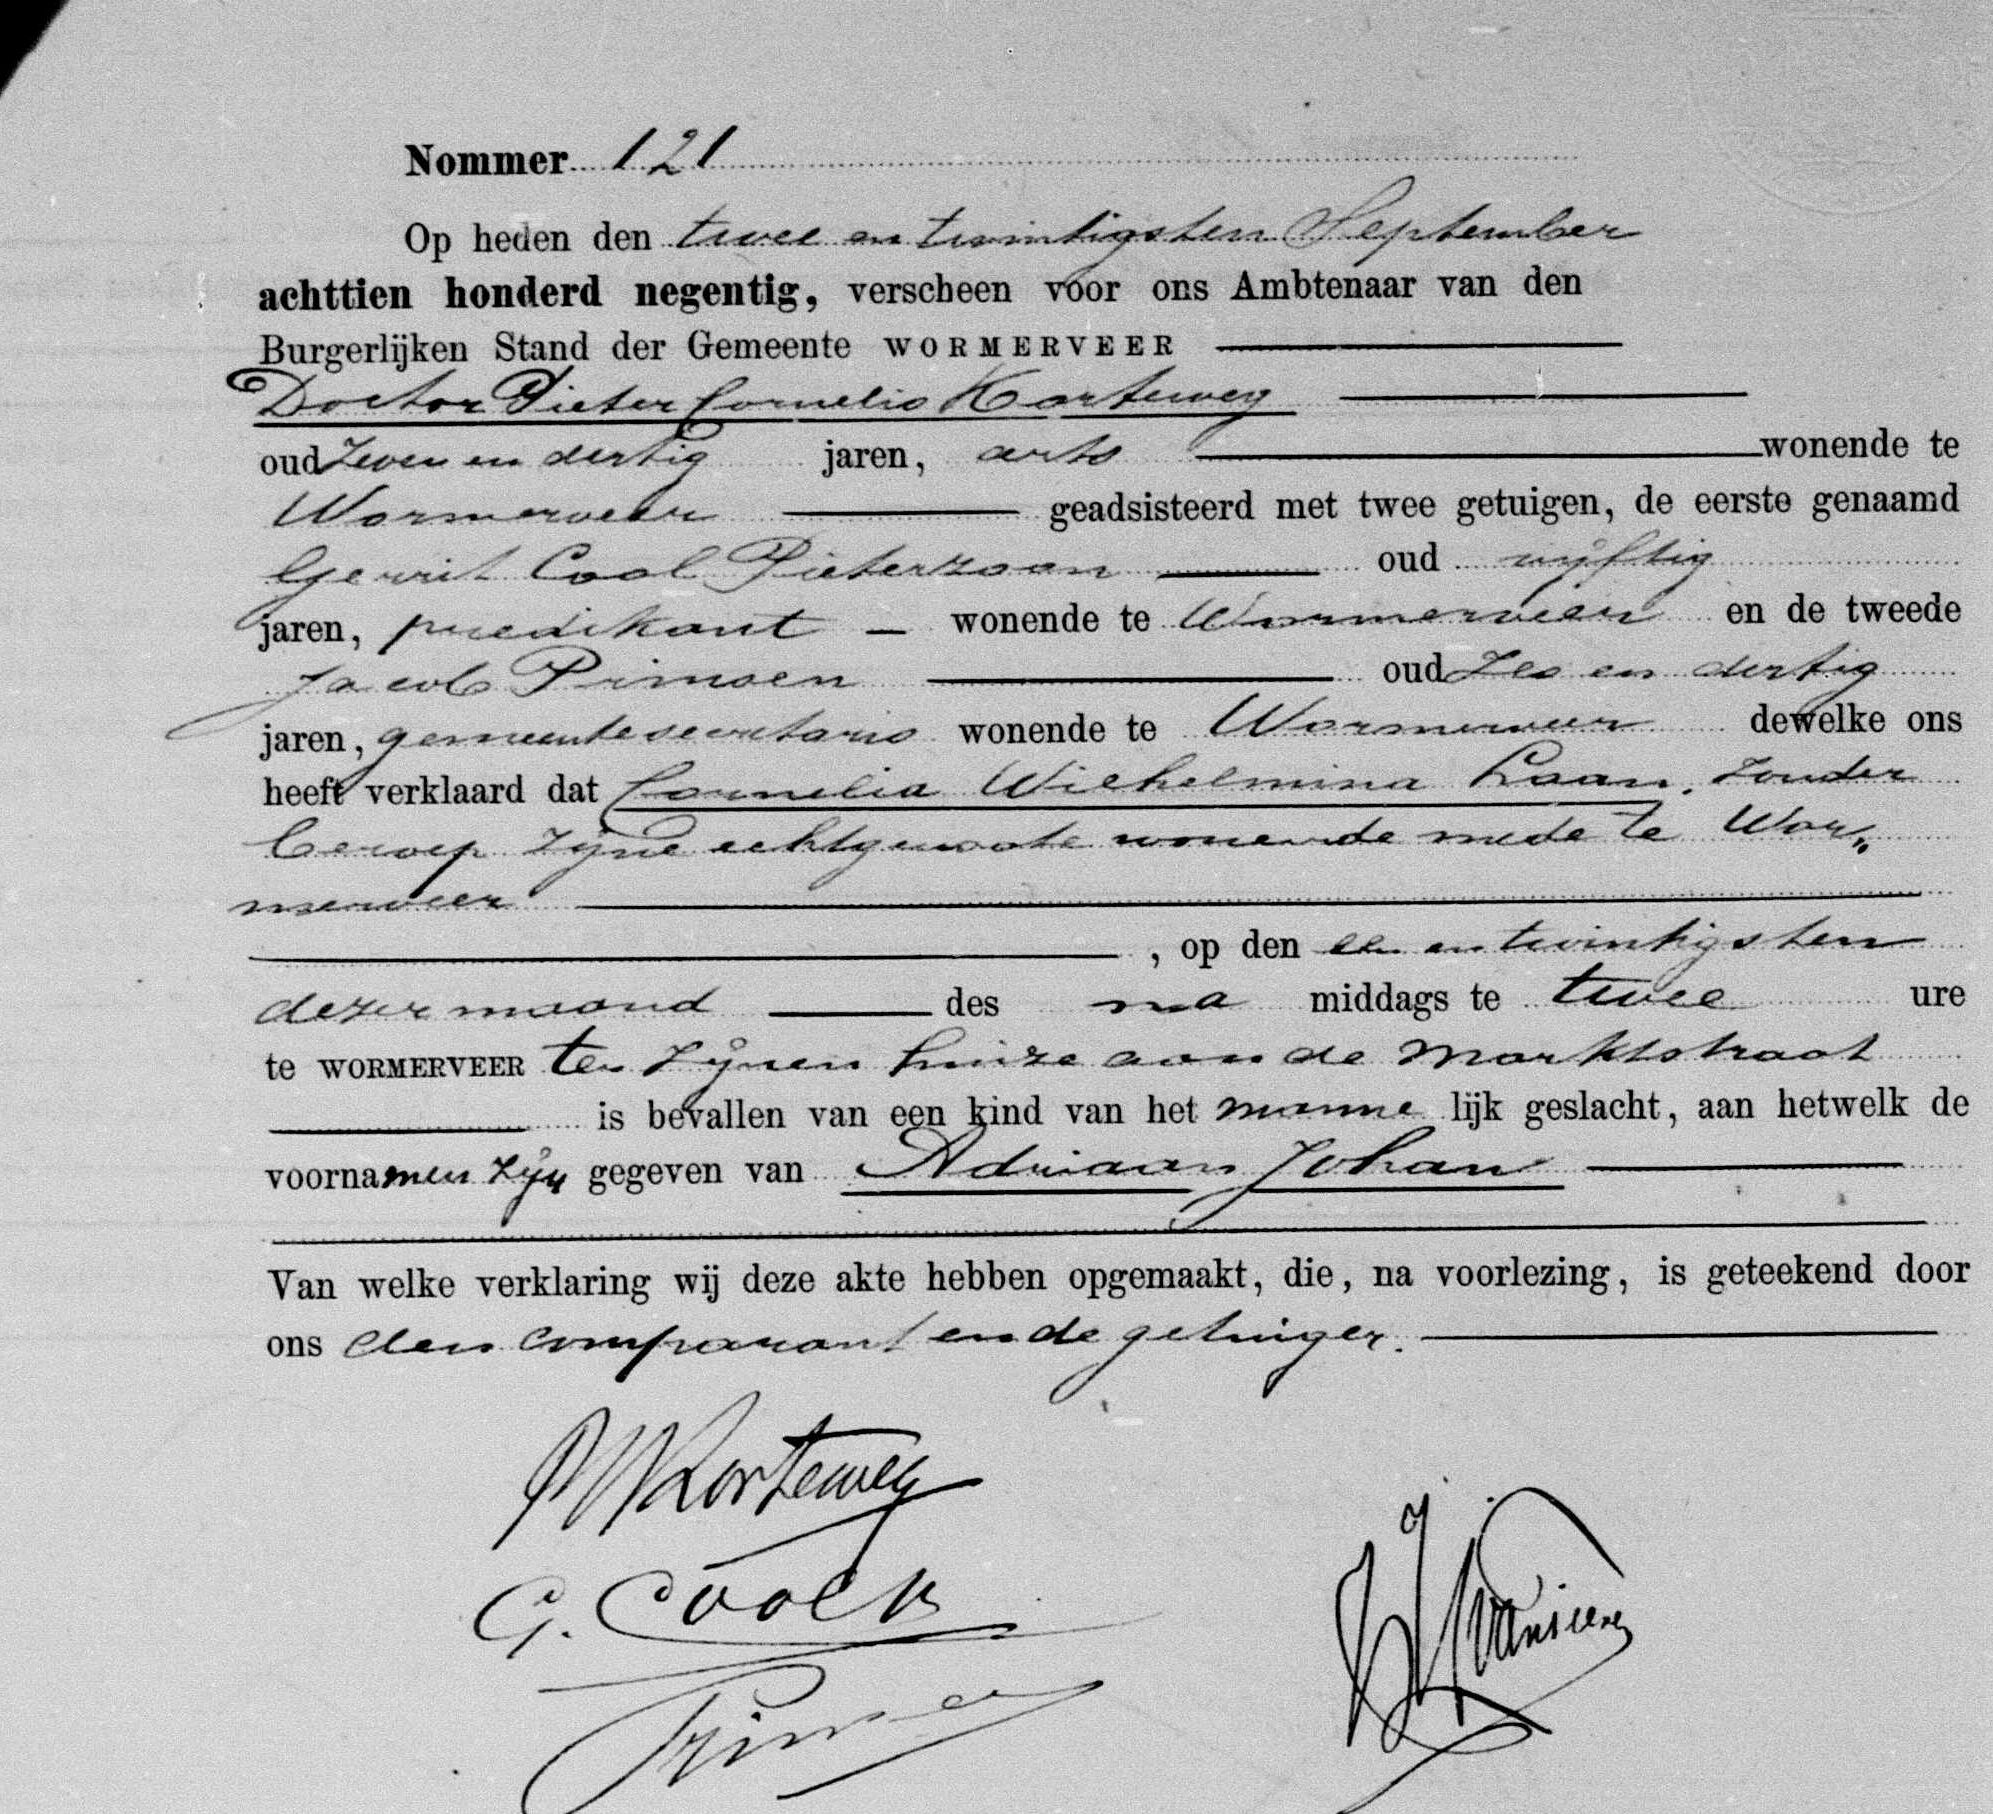 Nommer 121
Op heden den twee en twintigsten September
achttien honderd negentig, verscheen voor ons Ambtenaar van den
Burgerlijken Stand der Gemeente WORMERVEER
Doctor Pieter Cornelis Korteweg
oud Zeven en dertig jaren, arts wonende te
Wormerveer geadsisteerd met twee getuigen, de eerste genaamd
Gerrit Cool Pieterzoon oud vijftig
jaren, predikant wonende te Wormerveer en de tweede
Jacob Prinsen oud Zes en dertig
jaren, gemeentesecretaris wonende te Wormerveer dewelke ons
heeft verklaard dat Cornelia Wilhelmina Laan, zonder
beroep zijne echtgenoote wonende mede te Wor„
merveer
, op den een en twintigsten
dezer maand des na middags te twee ure
te WORMERVEER ten zijnen huize aan de Marktstraat
is bevallen van een kind van het manne lijk geslacht, aan hetwelk de
voornamen zijn gegeven van Adriaan Johan
Van welke verklaring wij deze akte hebben opgemaakt, die, na voorlezing, is geteekend door
ons den comparant en de getuigen.
Korteweg
G. Cool
Prinsen